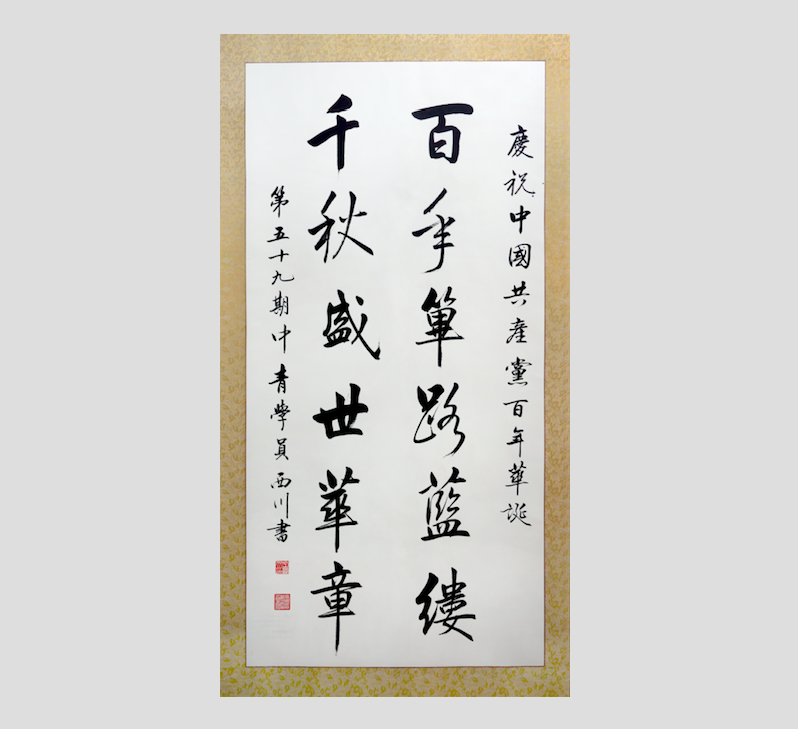 慶祝中國共產黨百年華誕
百年篳路藍縷
千秋盛世華章
第五十九期中青學員西川書